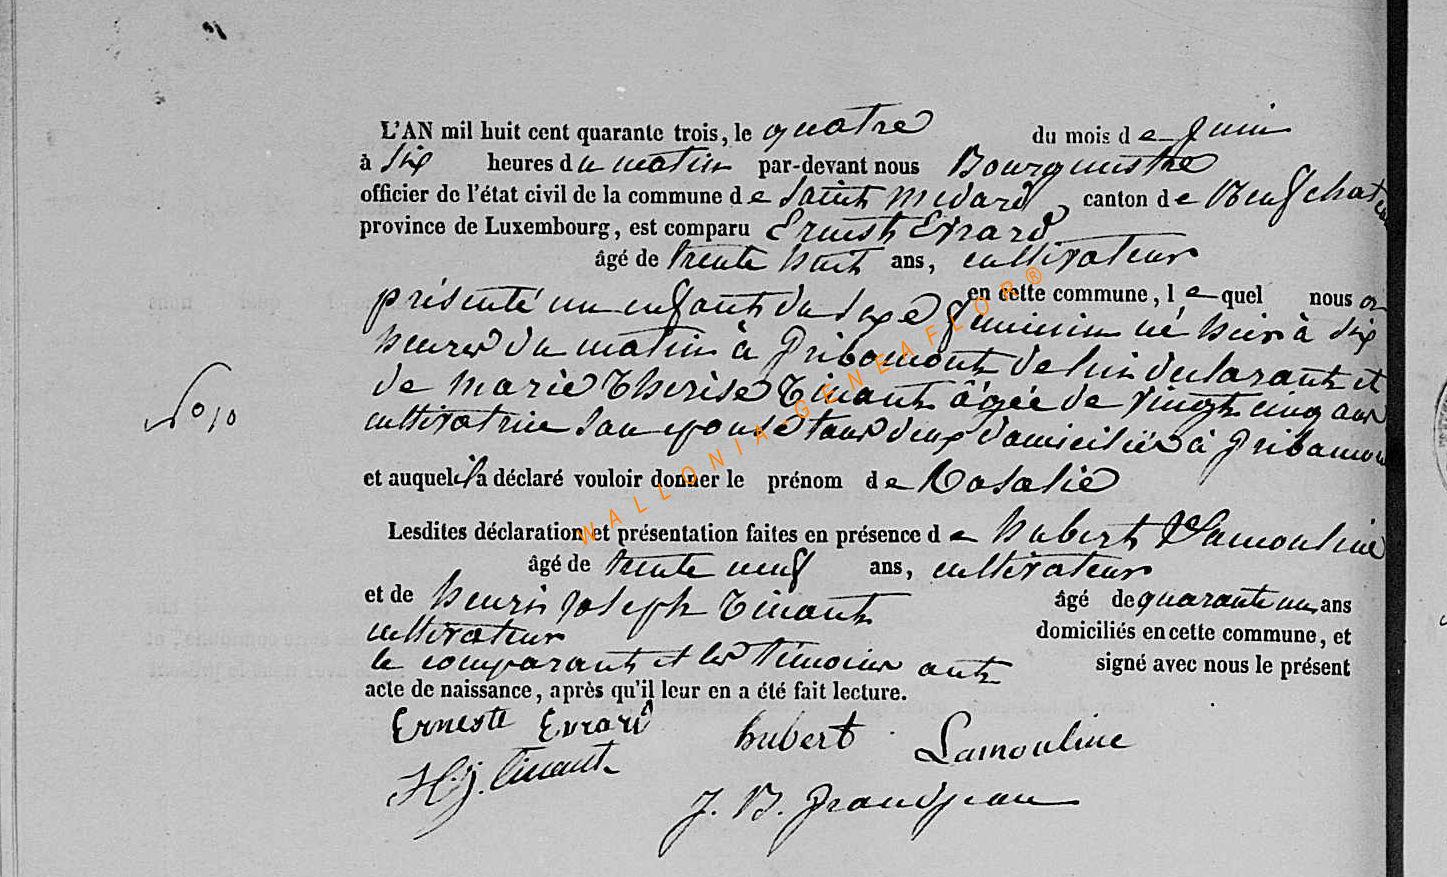 L'AN mil huit cent quarante trois, le quatre du mois de Juin
à six heures du matin par-devant nous Bourgmestre
officier de l'état civil de la commune de Saint Medard, canton de Neufchateau
province de Luxembourg, est comparu Ernest Evrard
âgé de trente huit ans, cultivateur
en cette commune, lequel nous a
présenté un enfant du sexe feminin né hier à six
heures du matin à Gribomont de lui declarant et
de Marie Therise Tinant âgée de vingt cinq ans
cultivatrice son epouse tous deux domiciliés à Gribomont
et auquel il a déclaré vouloir donner le prénom de Rosalie
N° 10
Lesdites déclaration et présentation faites en présence de hubert Lamouline
âgé de trente neuf ans, cultivateur
et de henri Joseph Tinant âgé de quarante un ans
cultivateur domiciliés en cette commune, et
le comparant et les témoins ont signé avec nous le présent
acte de naissance, après qu'il leur en a été fait lecture.
Erneste Evrard hubert Lamouline
H.j. tinant
J. B. Grandjean
WALLONIA-GENEAFLOR®